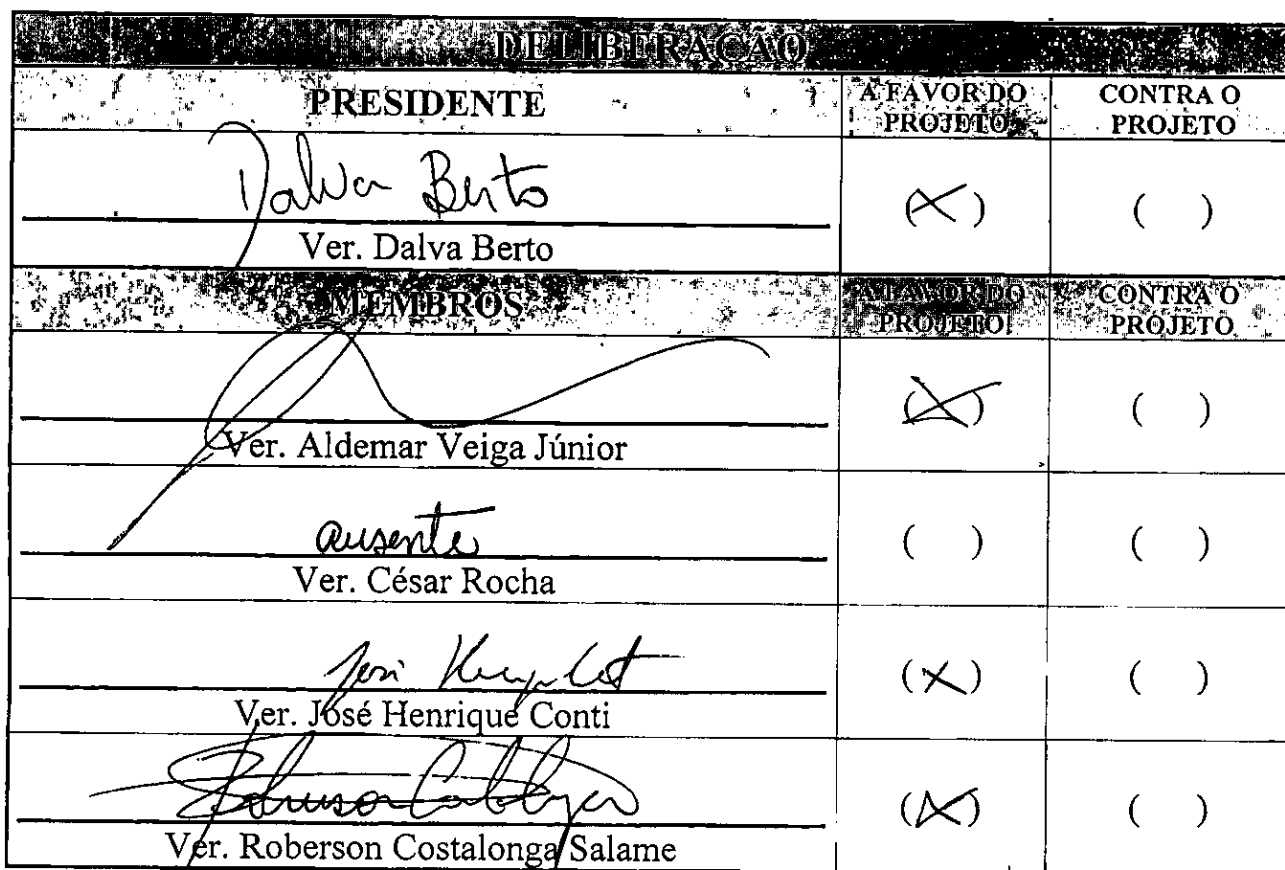 DELIBERAÇÃO
PRESIDENTE A FAVOR DO PROJETO CONTRA O PROJETO
Dalva Berto
(X) ( )
Ver. Dalva Berto
MEMBROS A FAVOR DO PROJETO CONTRA O PROJETO
(X) ( )
Ver. Aldemar Veiga Júnior
ausente
( ) ( )
Ver. César Rocha
(X) ( )
Ver. José Henrique Conti
(X) ( )
Ver. Roberson Costalonga Salame